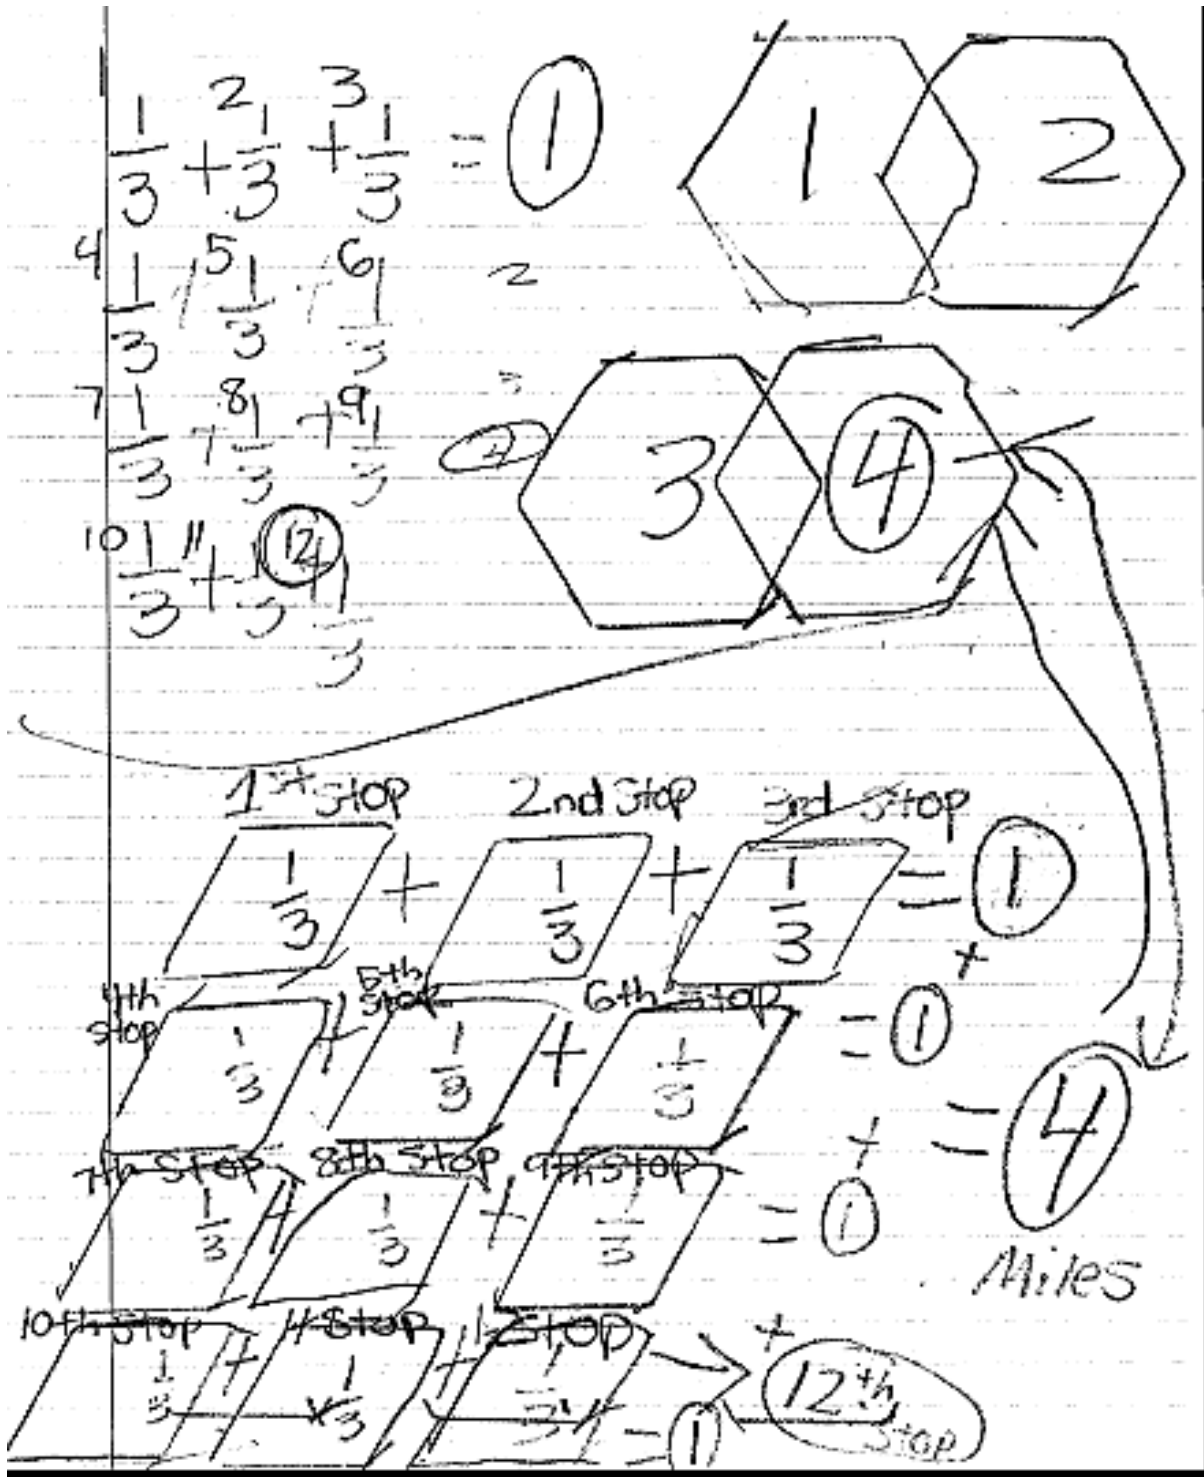 1 2 3
1/3 + 1/3 + 1/3 = 1
1 2
4 5 6
1/3 + 1/3 + 1/3 2
7 8 9
1/3 + 1/3 + 1/3
3 4
10 11 12
1/3 + 1/3 + 1/3
1st stop 2nd stop 3rd stop
1/3 + 1/3 + 1/3 = 1
+
4th stop 5th stop 6th stop
1/3 + 1/3 + 1/3 = 1
+ = 4
Miles
7th stop 8th stop 9th stop
1/3 + 1/3 + 1/3 = 1
+
10th stop stop stop
1/3 + 1/3 + 1/3 = 1
12th stop